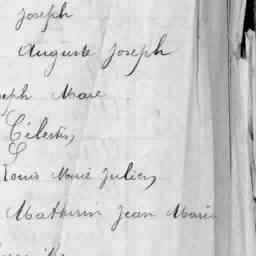 Joseph
Auguste Joseph
eph Marc
Célestin
Louis Marie Julien
Mathurin Jean Marie